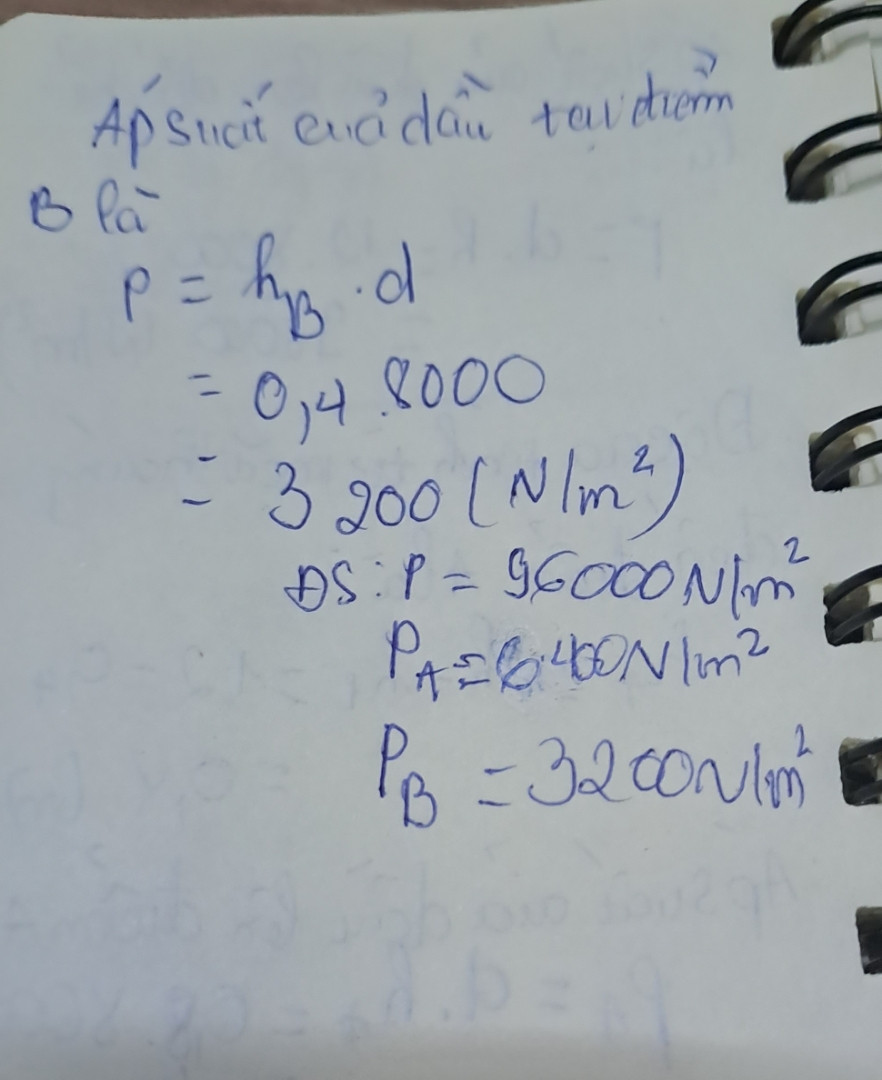 Áp suất của dầu tại điểm
B là
P = h_B . d
= 0,4 . 8000
= 3 200 (N/m²)
ĐS: P = 96000N/m²
P_A = 6400N/m²
P_B = 3200N/m²